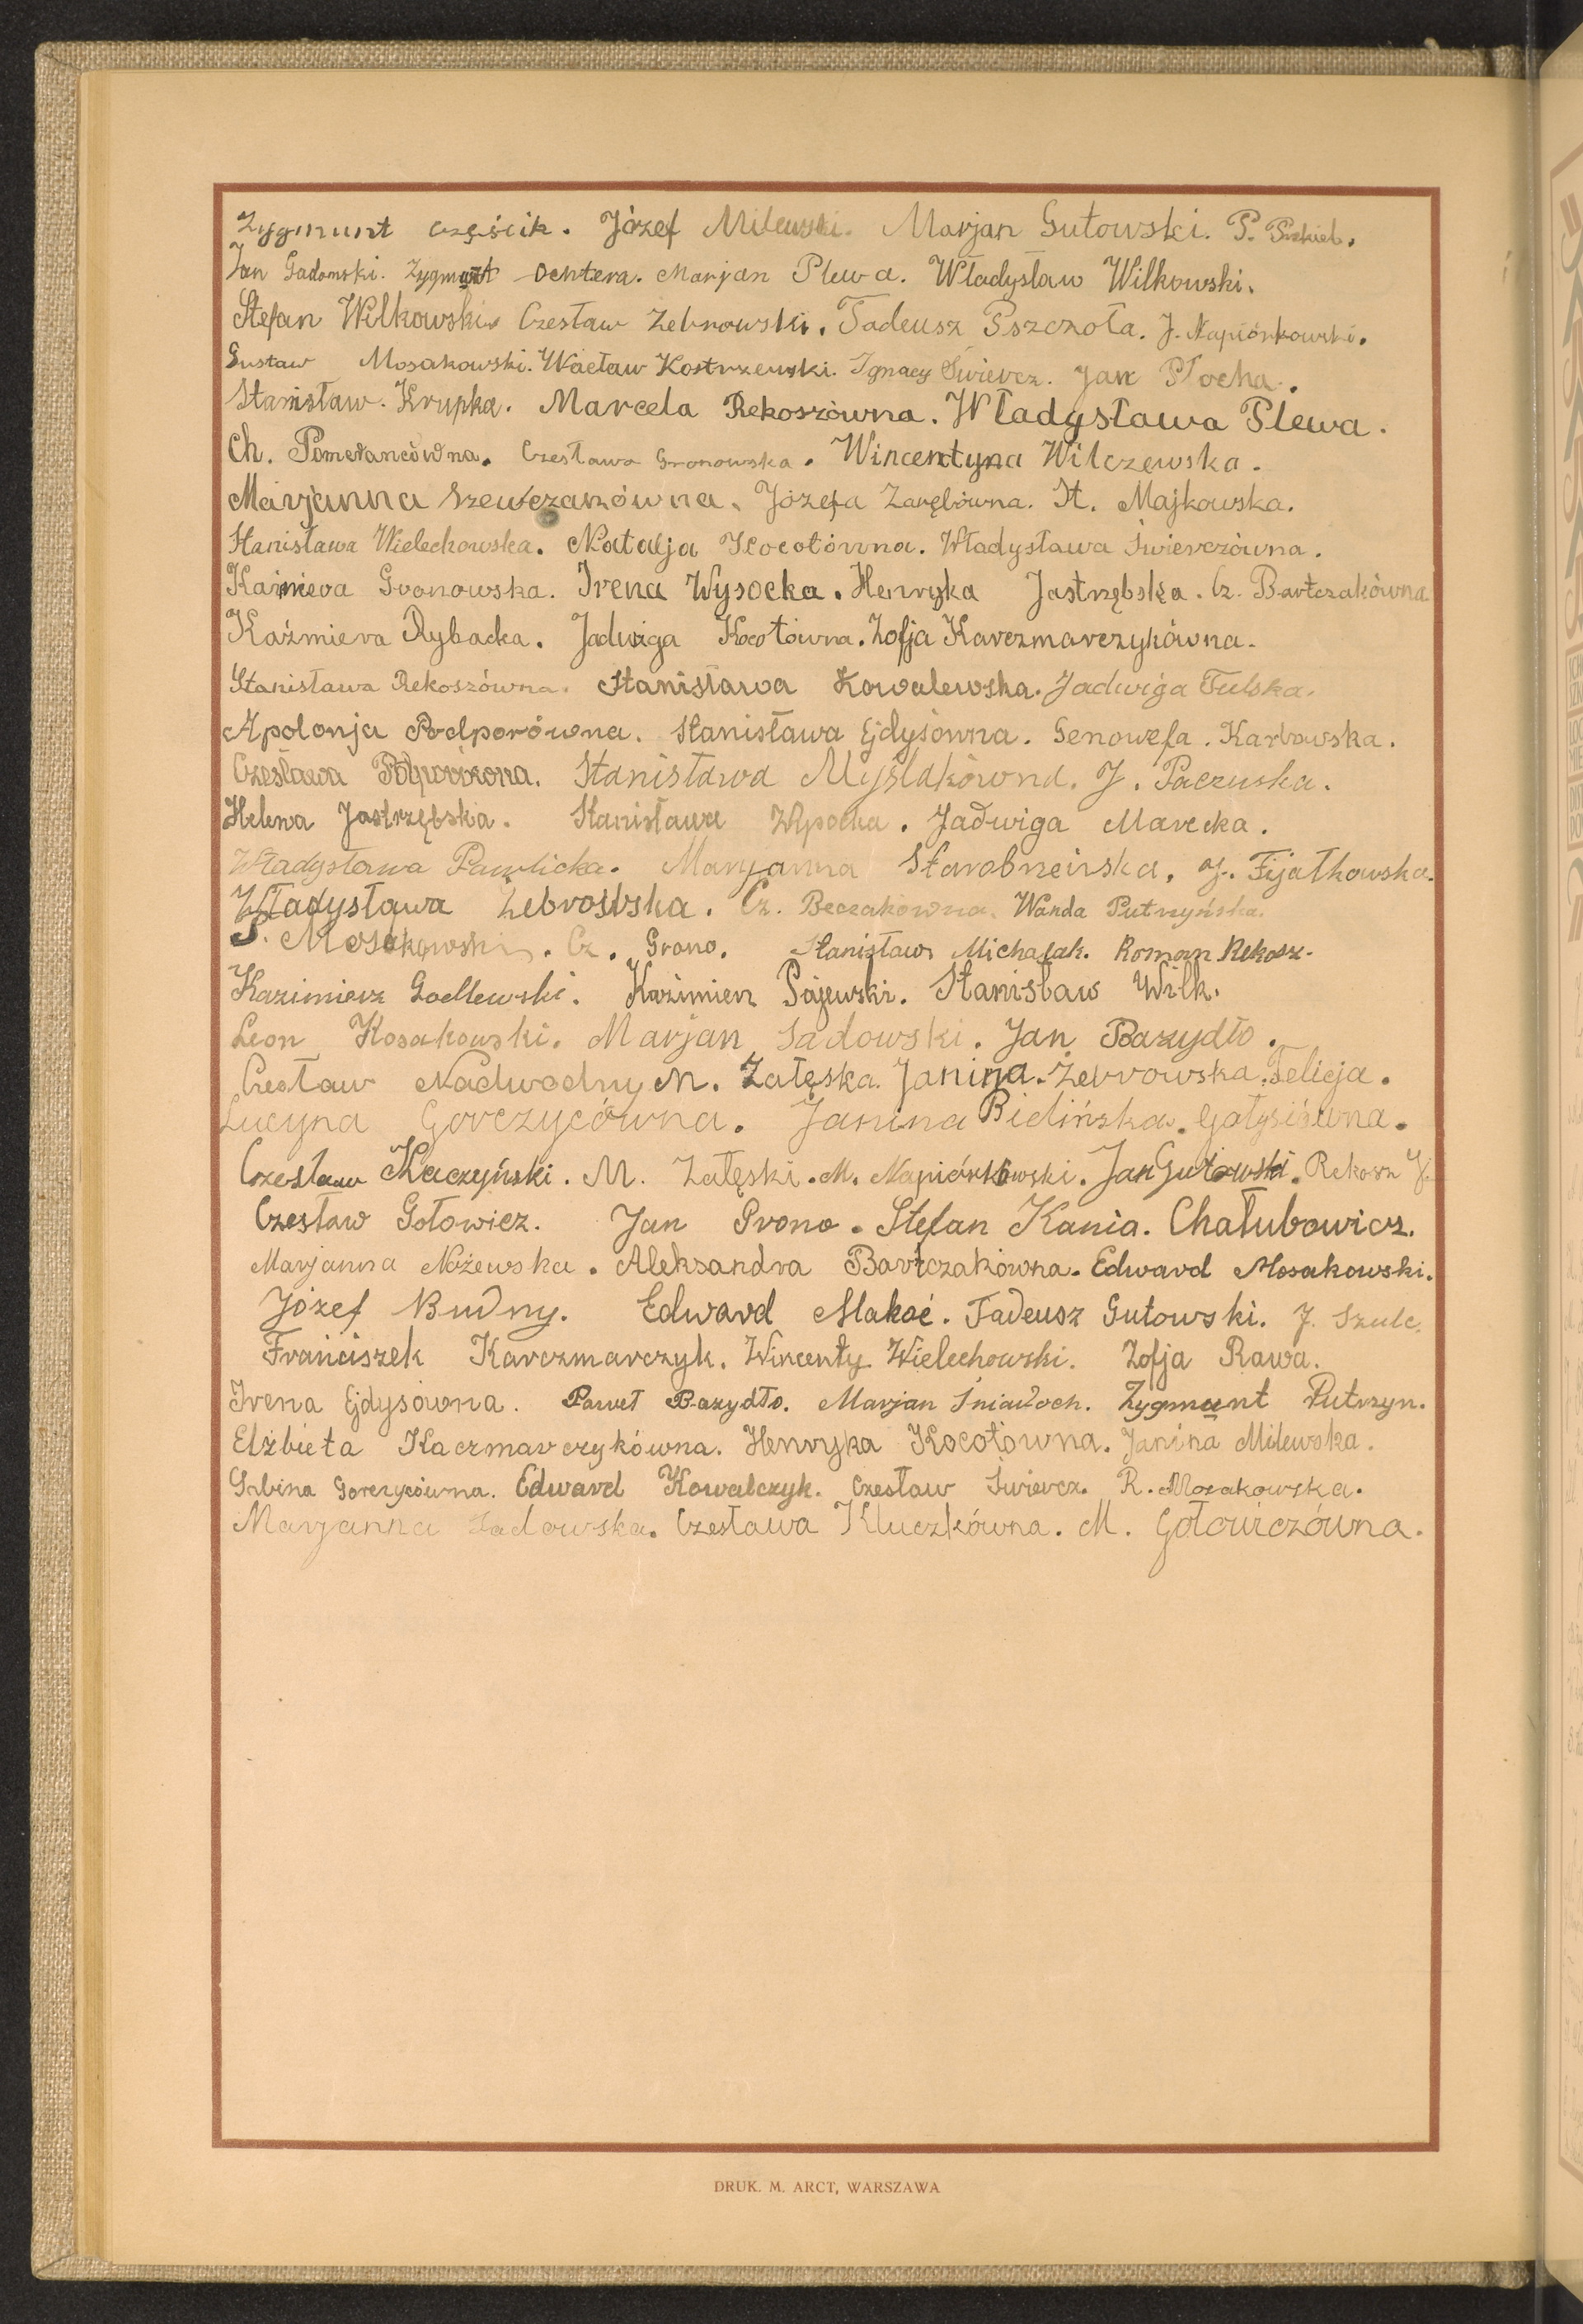 Zygmunt Częścik. Józef Milewski. Marjan Gutowski. P.
Jan Gadomski. Zygmunt Ochtera. Marjan Plewa. Władysław Wilkowski.
Stefan Wilkowski. Czesław Żebrowski. Tadeusz Pszczoła. J. Napiórkowski.
Gustaw Mosakowski. Wacław Kostrzewski. Ignacy Świercz. Jan Płocha.
Stanisław. Krupka. Marcela Rekoszówna. Władysława Plewa.
Ch. Pomerancówna. Czesława Gronowska. Wincentyna Wilczewska.
Marjanna Szewczakówna. Józefa Zarębówna. St. Majkowska.
Stanisława Wielechowska. Natalja Kocotówna. Władysława Świerczówna.
Kaźmiera Gronowska. Irena Wysocka. Henryka Jastrzębska. Cz. Bartczakówna
Kaźmiera Rybacka. Jadwiga Kocotówna. Zofja Karczmarczykówna.
Stanisława Rekoszówna. Stanisława Kowalewska. Jadwiga Tulska.
Apolonja Podporówna. Stanisława Ejdysówna. Genowefa. Karbowska.
Czesława Stanisława Myślakówna. J. Paczuska.
Helena Jastrzębska. Stanisława Wysocka. Jadwiga Marecka.
Władysława Pawlicka. Marjanna J. Fijałkowska.
Władysława Żebrowska. Cz. Beczakówna. Wanda Putrzyńska.
S. Mosakowski. Cz. Grono. Stanisław Michalak. Roman Rekosz.
Kazimierz Godlewski. Kazimierz Pajewski. Stanisław Wilk.
Leon Kosakowski. Marjan Sadowski. Jan Bazydło.
Czesław Nadwodny M. Załęska. Janina. Żebrowska. Felicja.
Lucyna Gorczycówna. Janina Bielińska. Gołysiówna.
Czesław Kaczyński. M. Załęski. M. Napiórkowski. Jan Gutowski. Rekosz J.
Czesław Gołowicz. Jan Grono. Stefan Kania. Chałubowicz.
Marjanna Nożewska. Aleksandra Bartczakówna. Edward Mosakowski.
Józef Budny. Edward Makać. Tadeusz Gutowski. J. Szulc.
Franciszek Karczmarczyk. Wincenty Wielechowski. Zofja Rawa.
Irena Ejdysówna. Paweł Bazydło. Marjan Śniadoch. Zygmunt Putrzyn.
Elżbieta Kaczmarczykówna. Henryka Kocotówna. Janina Milewska.
Sabina Gorczycówna. Edward Kowalczyk. Czesław Świercz. R. Mosakowska.
Marjanna Sadowska. Czesława Kluczkówna. M. Gołowiczówna.
DRUK. M. ARCT, WARSZAWA